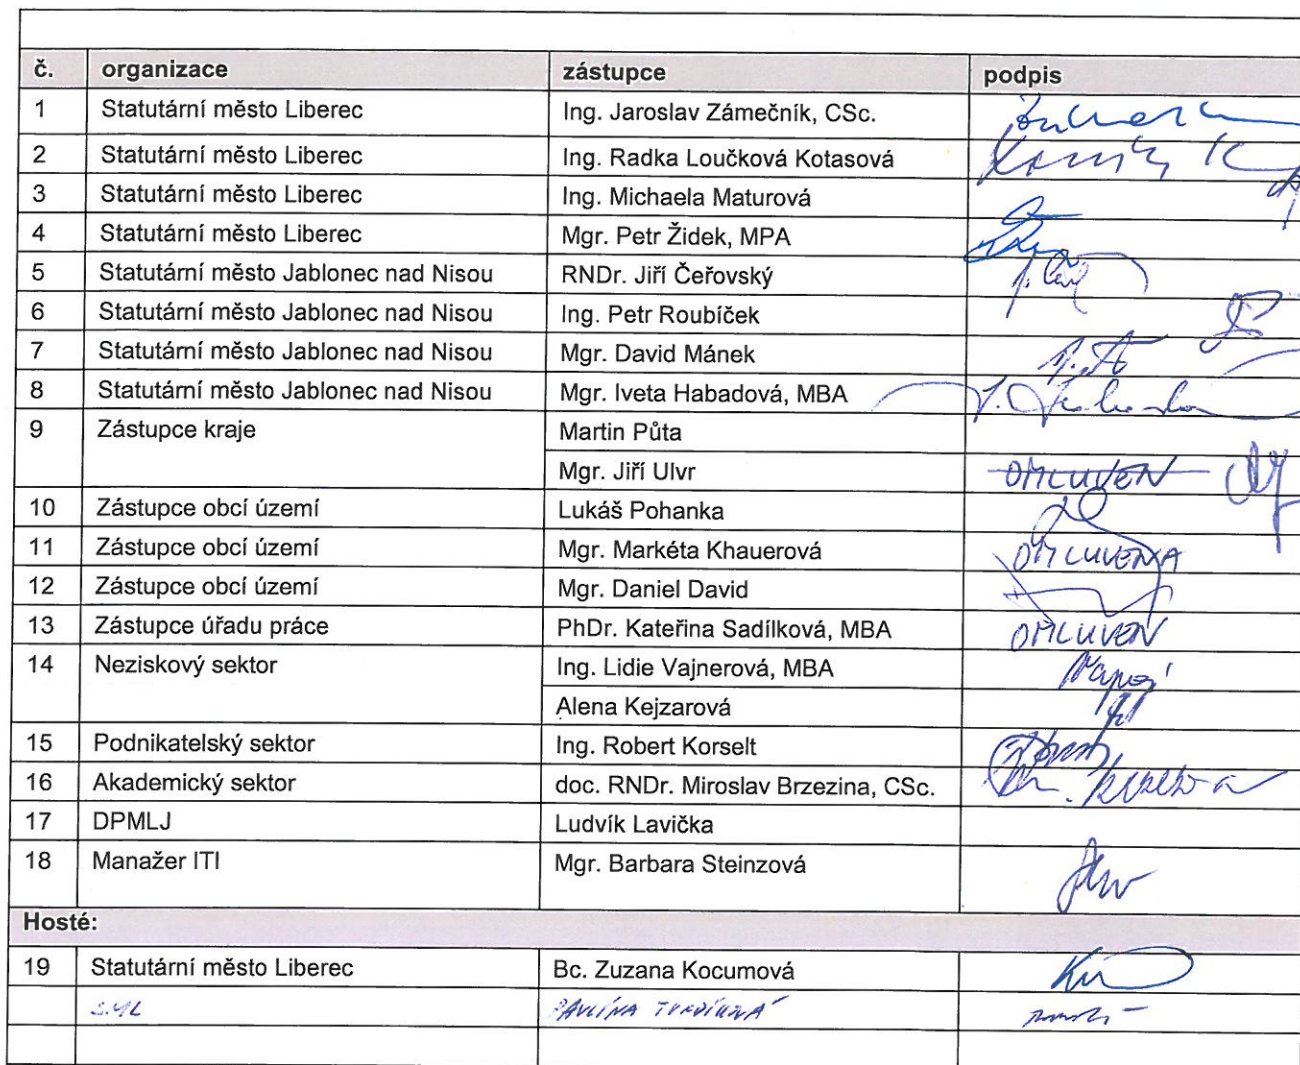 č. organizace zástupce podpis
1 Statutární město Liberec Ing. Jaroslav Zámečník, CSc.
2 Statutární město Liberec Ing. Radka Loučková Kotasová
3 Statutární město Liberec Ing. Michaela Maturová
4 Statutární město Liberec Mgr. Petr Židek, MPA
5 Statutární město Jablonec nad Nisou RNDr. Jiří Čeřovský
6 Statutární město Jablonec nad Nisou Ing. Petr Roubíček
7 Statutární město Jablonec nad Nisou Mgr. David Mánek
8 Statutární město Jablonec nad Nisou Mgr. Iveta Habadová, MBA
9 Zástupce kraje Martin Půta
Mgr. Jiří Ulvr OMLUVEN
10 Zástupce obcí území Lukáš Pohanka
11 Zástupce obcí území Mgr. Markéta Khauerová OMLUVENA
12 Zástupce obcí území Mgr. Daniel David
13 Zástupce úřadu práce PhDr. Kateřina Sadílková, MBA OMLUVEN
14 Neziskový sektor Ing. Lidie Vajnerová, MBA
Alena Kejzarová
15 Podnikatelský sektor Ing. Robert Korselt
16 Akademický sektor doc. RNDr. Miroslav Brzezina, CSc.
17 DPMLJ Ludvík Lavička
18 Manažer ITI Mgr. Barbara Steinzová
Hosté:
19 Statutární město Liberec Bc. Zuzana Kocumová
SML PAVLÍNA